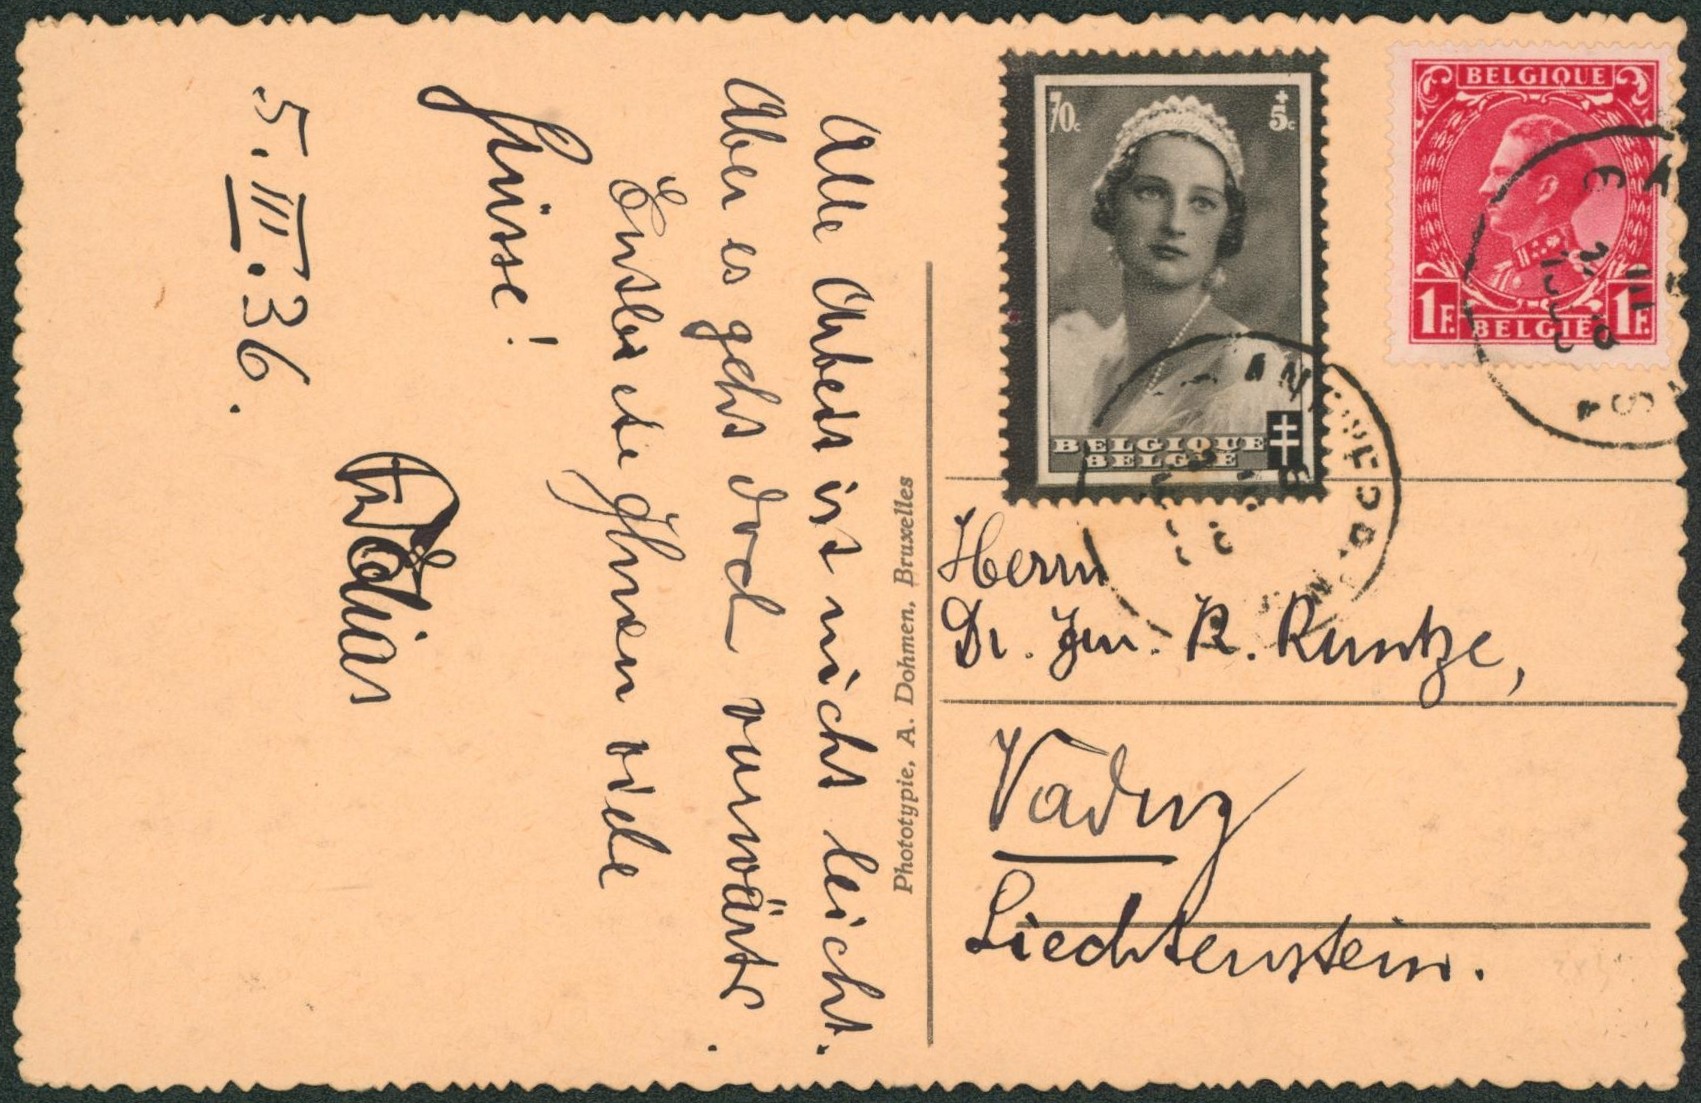 Alle Arbeit ist nicht leicht.
Aber es geht doch vorwärts.
Ihnen viele
Grüsse!
5.III.36.
Phototypie, A. Dohmen, Bruxelles
70c
+
5c
BELGIQUE
BELGIË
BELGIQUE
1F.
1F.
BELGIË
Herrn
Dr. Jur. R. Runtze,
Vaduz
Liechtenstein.